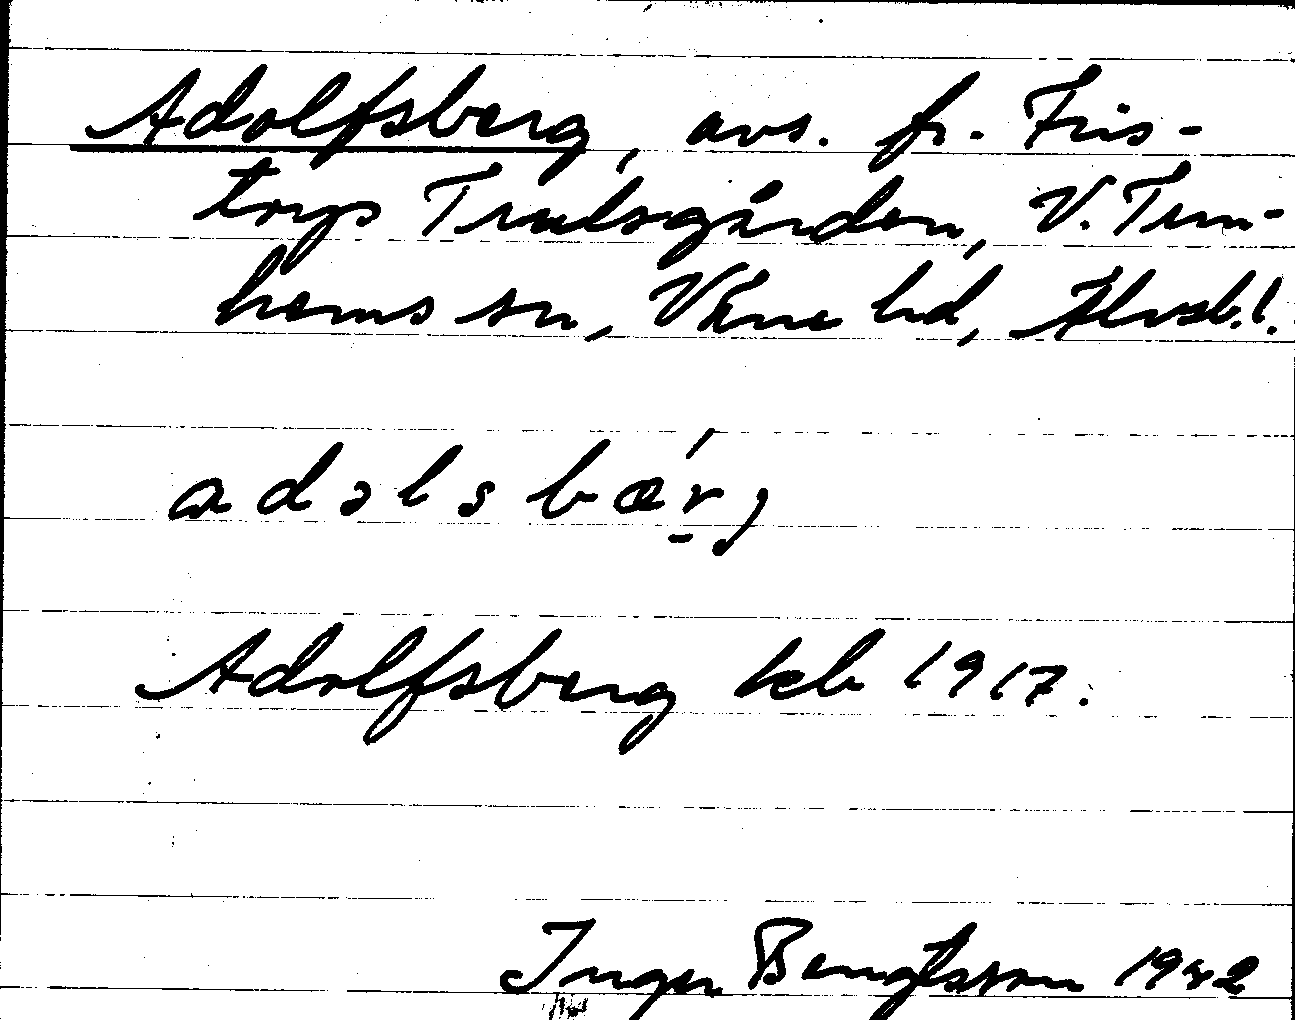 Adolfsberg, avs. fr. Fris-
torp Trulsgården, V. Tun-
hems sn, Väne hd, Älvsb.l.
adɔlsbǽr̠j
Adolfsberg keb 1917.
Inger Bengtsson 1942